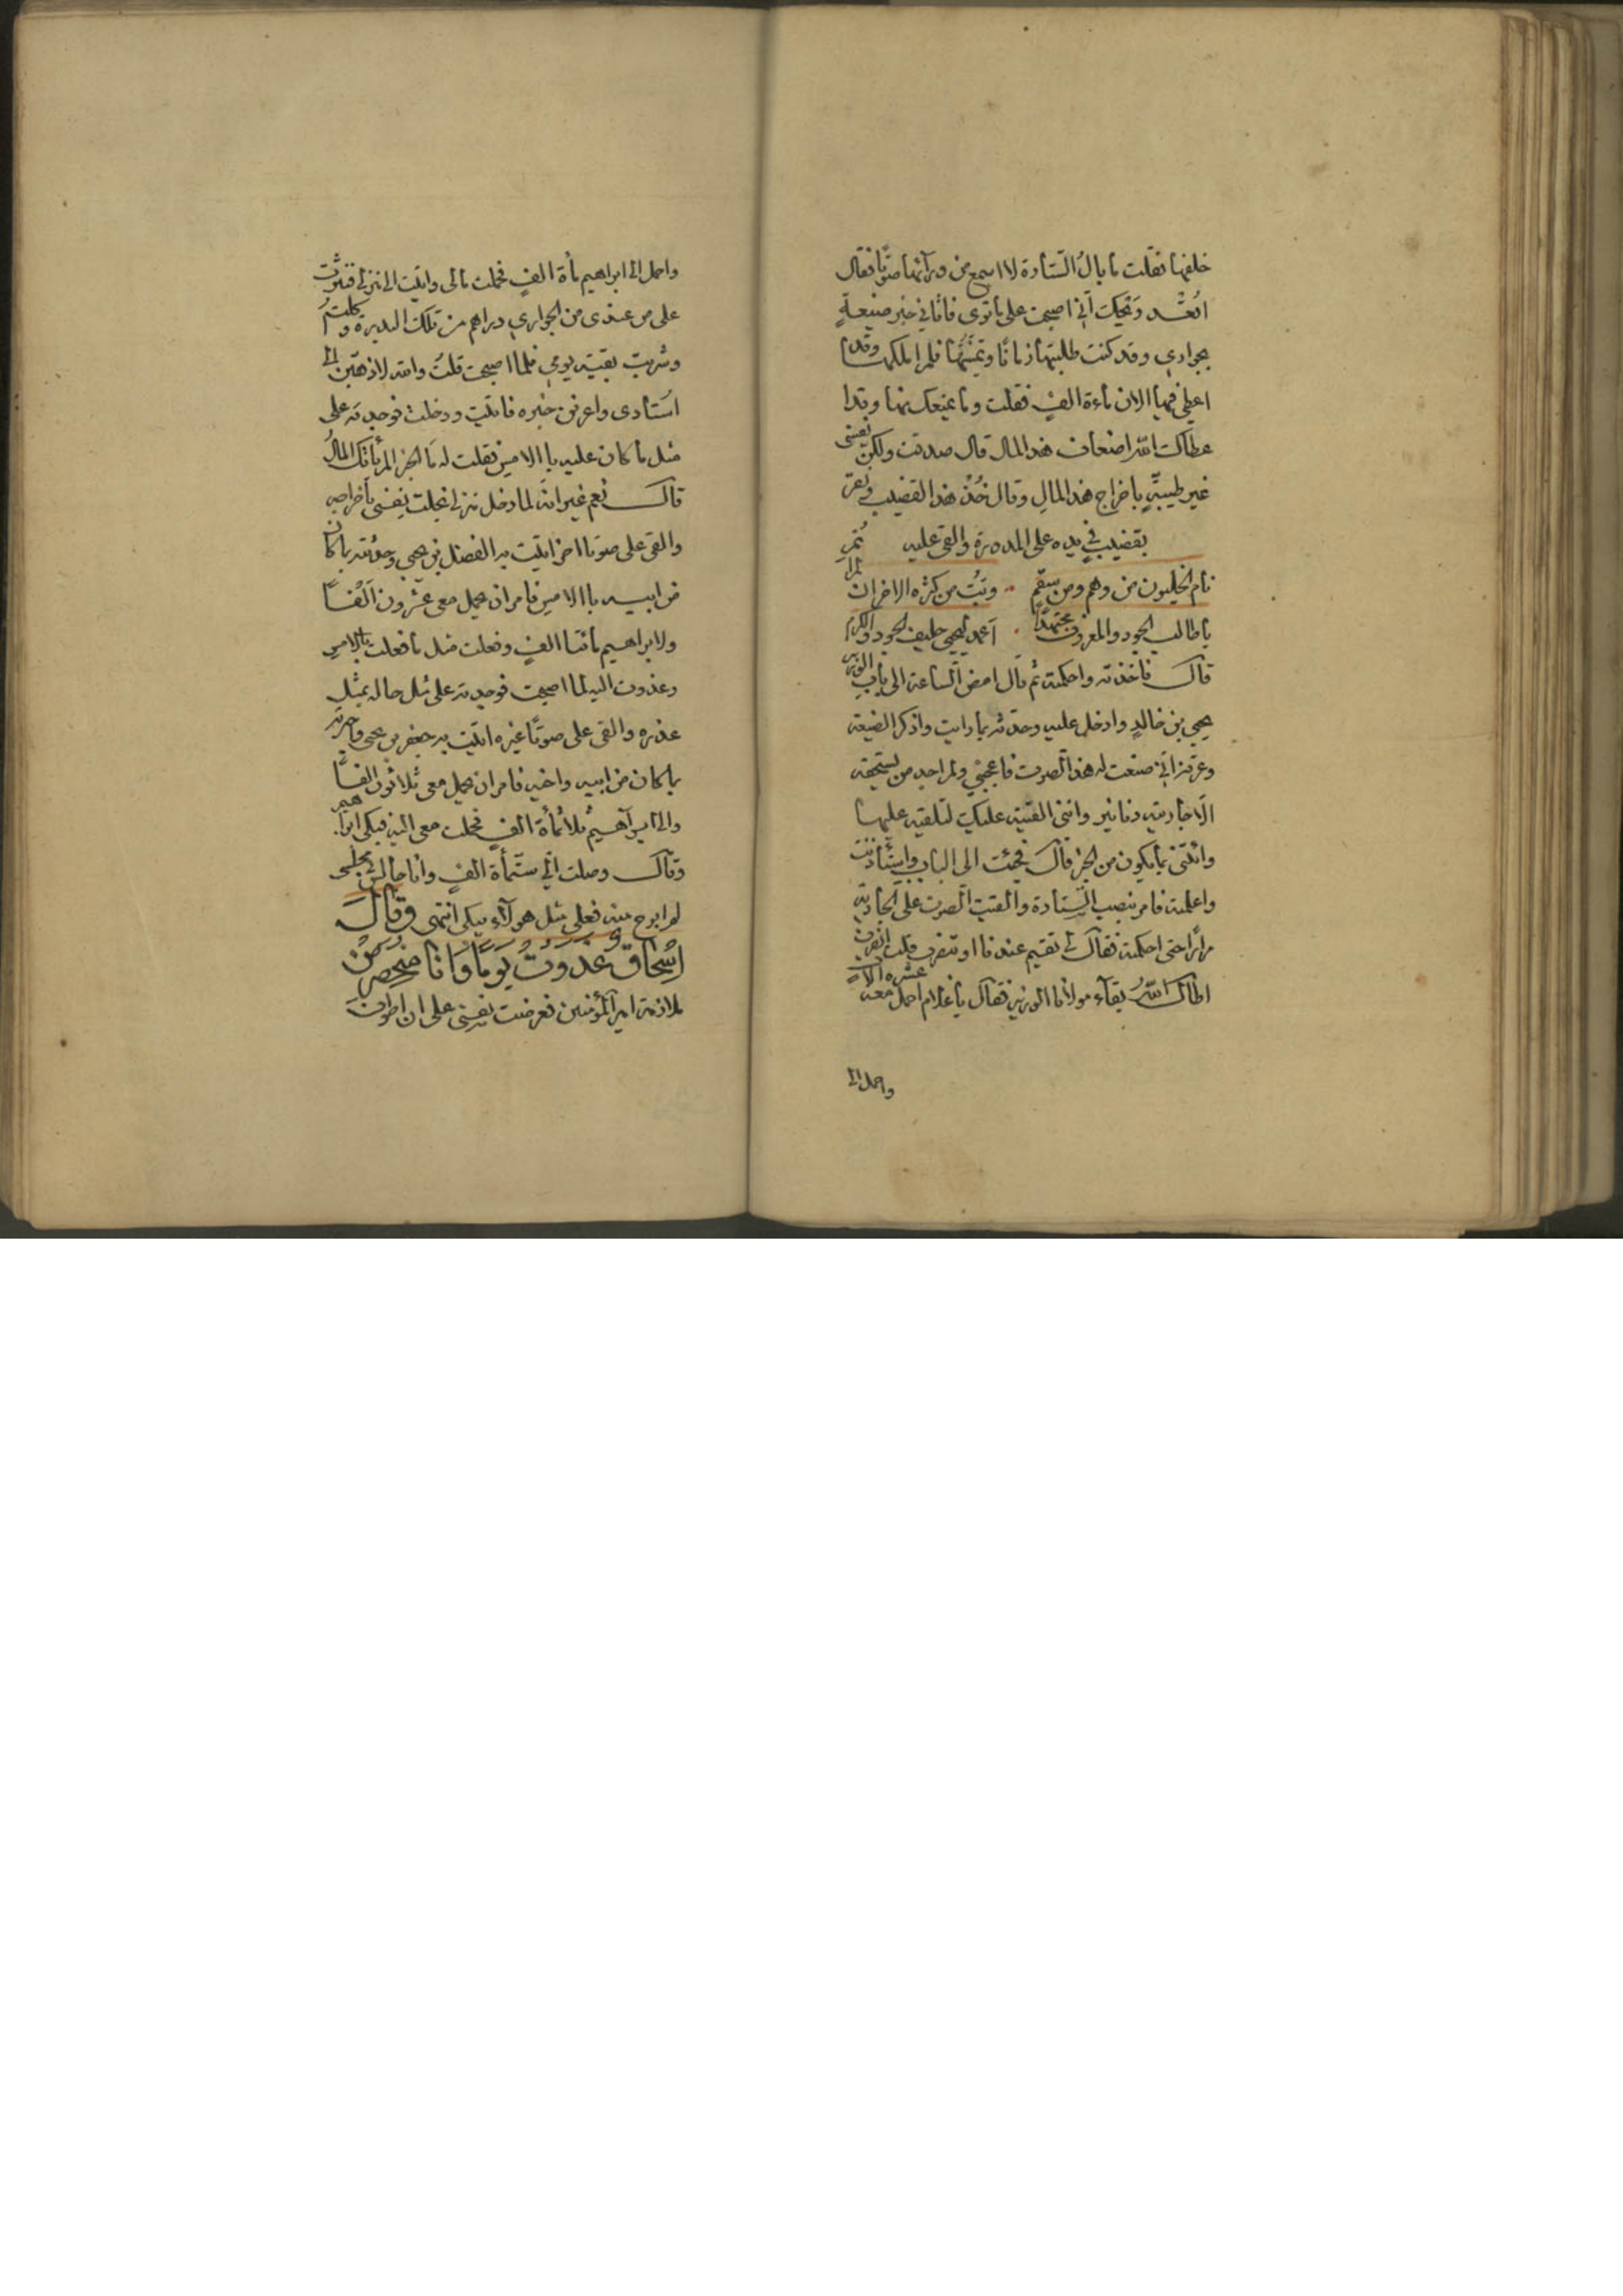 خلفها فقلت ما بالُ الستارة لا اسمع من ورآئها صوتًا فقال
اقعُد ويحك انى اصبحت على ما ترى فاتانى خبر ضيعةٍ
بجوارى وقد كنت طلبتها زمانًا وتمنيتها فلم املكها وقد
اعطى فيها الان ماءة الفٍ فقلت وما يمنعك منها وقد ا
عطاك الله اضعاف هذا المال قال صدقت ولكن نفسى
غير طيبةٍ باخراج هذا المالِ وقال خُذ هذا القضيب ونقر
بقضيبٍ فى يده على المدورة والقى عليه ثم
نام الخليون من وهم ومن سقمٍ وبتُّ من كثرة الاحزان لم
يا طالب الجود والمعروف مجتهدًا اعمد ليحيى حليف الجود والكرم
قال فاخذته واحكمته ثم قال امض الساعة الى باب الوزير
يحيى بن خالدٍ وادخل عليه وحدثه بما رايت واذكر الضيعة
وعرفه انى صنعت له هذا الصوت فاعجبنى ولم اجد من يستحقه
الا جاريته دنانير واننى القيته عليك لتلقيه عليها
وائتنى بما يكون من الخبر قال فجئت الى الباب واستأذنت
واعلمته فامر بنصب الستارة والقيت الصوت على الجارية
مرارًا حتى احكمته فقال لى تقيم عندنا او تنصرف قلت انصرف
اطال اللهُ بقآء مولانا الوزير فقال يا غلام احمل معه عشرة الاف
واحمل الى
واحمل الى ابراهيم مأة الفٍ فحملت مالى واتيت الى منزلى فنثرت
على من عندى من الجوارى دراهم من تلك البدرة واكلت
وشربت بقية يومى فلما اصبحت قلت والله لاذهبن الى
استادى واعرفن خبره فاتيت ودخلت فوجدته على
مثل ما كان عليه با الامس فقلت له ما الخبر الم يأتك المالُ
قال نعم غير انه لما دخل منزلى بخلت نفسى باخراجه
والقى على صوتا اخر اتيت به الفضل بن يحيى وحدثته بما كان
من ابيه با الامس فامر ان يحمل معى عشرون الفًا
ولابراهيم مائتا الفٍ وفعلت مثل ما فعلت بالامس
وغدوت اليه لما اصبحت فوجدته على مثل حاله بمثل
عذره والقى على صوتًا غيره اتيت به جعفر بن يحيى واخبرته
بما كان من ابيه واخيه فامر ان يحمل معى ثلاثون الفًا
والى ابرآهيم ثلاثمأة الفٍ فحملت معى اليه فبكى ابراهيم
وقال وصلت الى ستمأة الفٍ وانا جالس فى مجلسى
لم ابرح منه فعلى مثل هولآء يبكى انتهى وقال
اسحاق غدوت يومًا وانا ضجر من
ملازمة امير المؤمنين فعرضت نفسى على ان اطوف